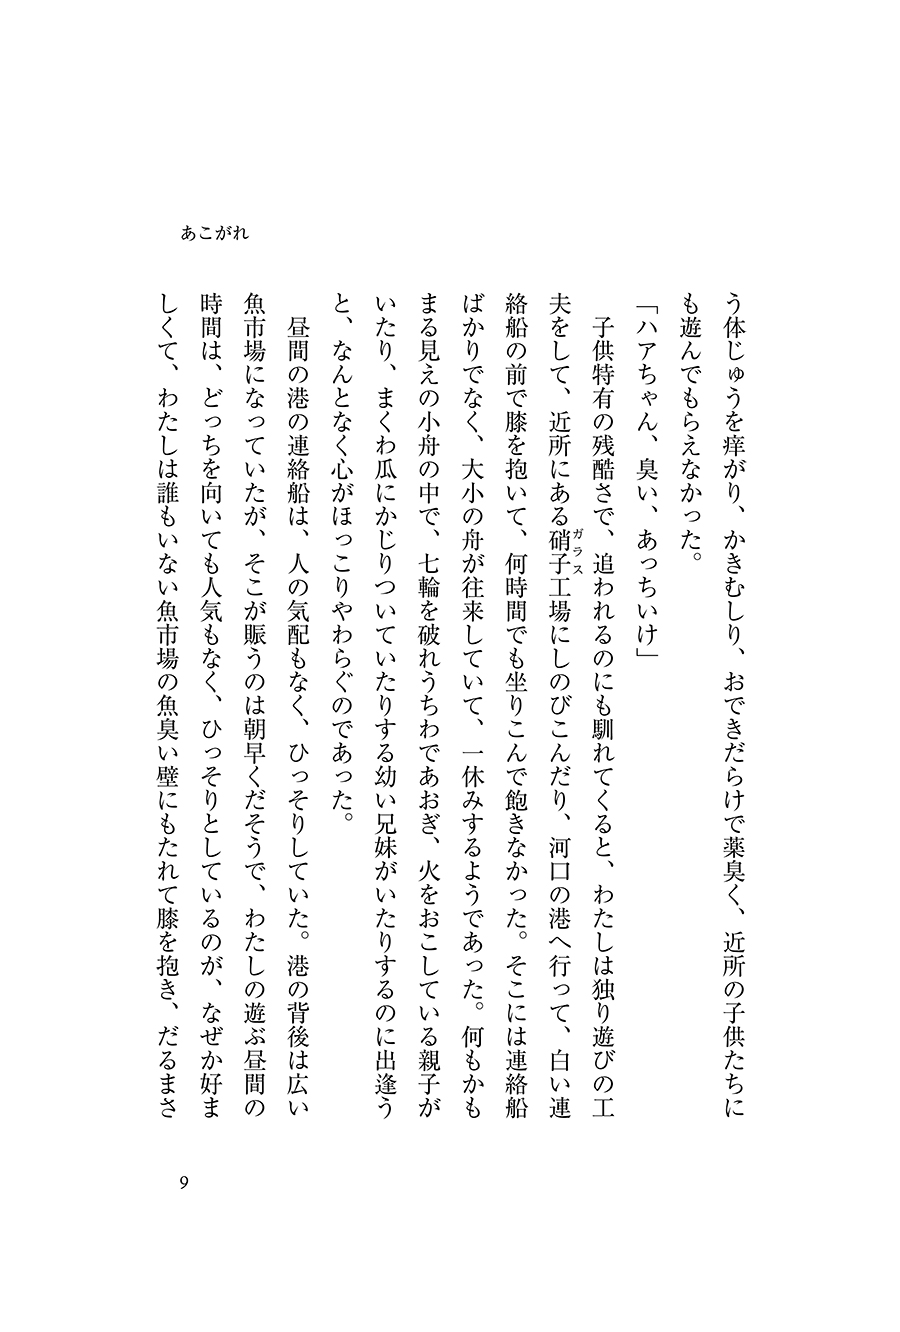 あこがれ
う体じゅうを痒がり、かきむしり、おできだらけで薬臭く、近所の子供たちに
も遊んでもらえなかった。
「ハアちゃん、臭い、あっちいけ」
子供特有の残酷さで、追われるのにも馴れてくると、わたしは独り遊びの工
夫をして、近所にある硝子工場にしのびこんだり、河口の港へ行って、白い連
ガラス
絡船の前で膝を抱いて、何時間でも坐りこんで飽きなかった。そこには連絡船
ばかりでなく、大小の舟が往来していて、一休みするようであった。何もかも
まる見えの小舟の中で、七輪を破れうちわであおぎ、火をおこしている親子が
いたり、まくわ瓜にかじりついていたりする幼い兄妹がいたりするのに出逢う
と、なんとなく心がほっこりやわらぐのであった。
昼間の港の連絡船は、人の気配もなく、ひっそりしていた。港の背後は広い
魚市場になっていたが、そこが賑うのは朝早くだそうで、わたしの遊ぶ昼間の
時間は、どっちを向いても人気もなく、ひっそりとしているのが、なぜか好ま
しくて、わたしは誰もいない魚市場の魚臭い壁にもたれて膝を抱き、だるまさ
9